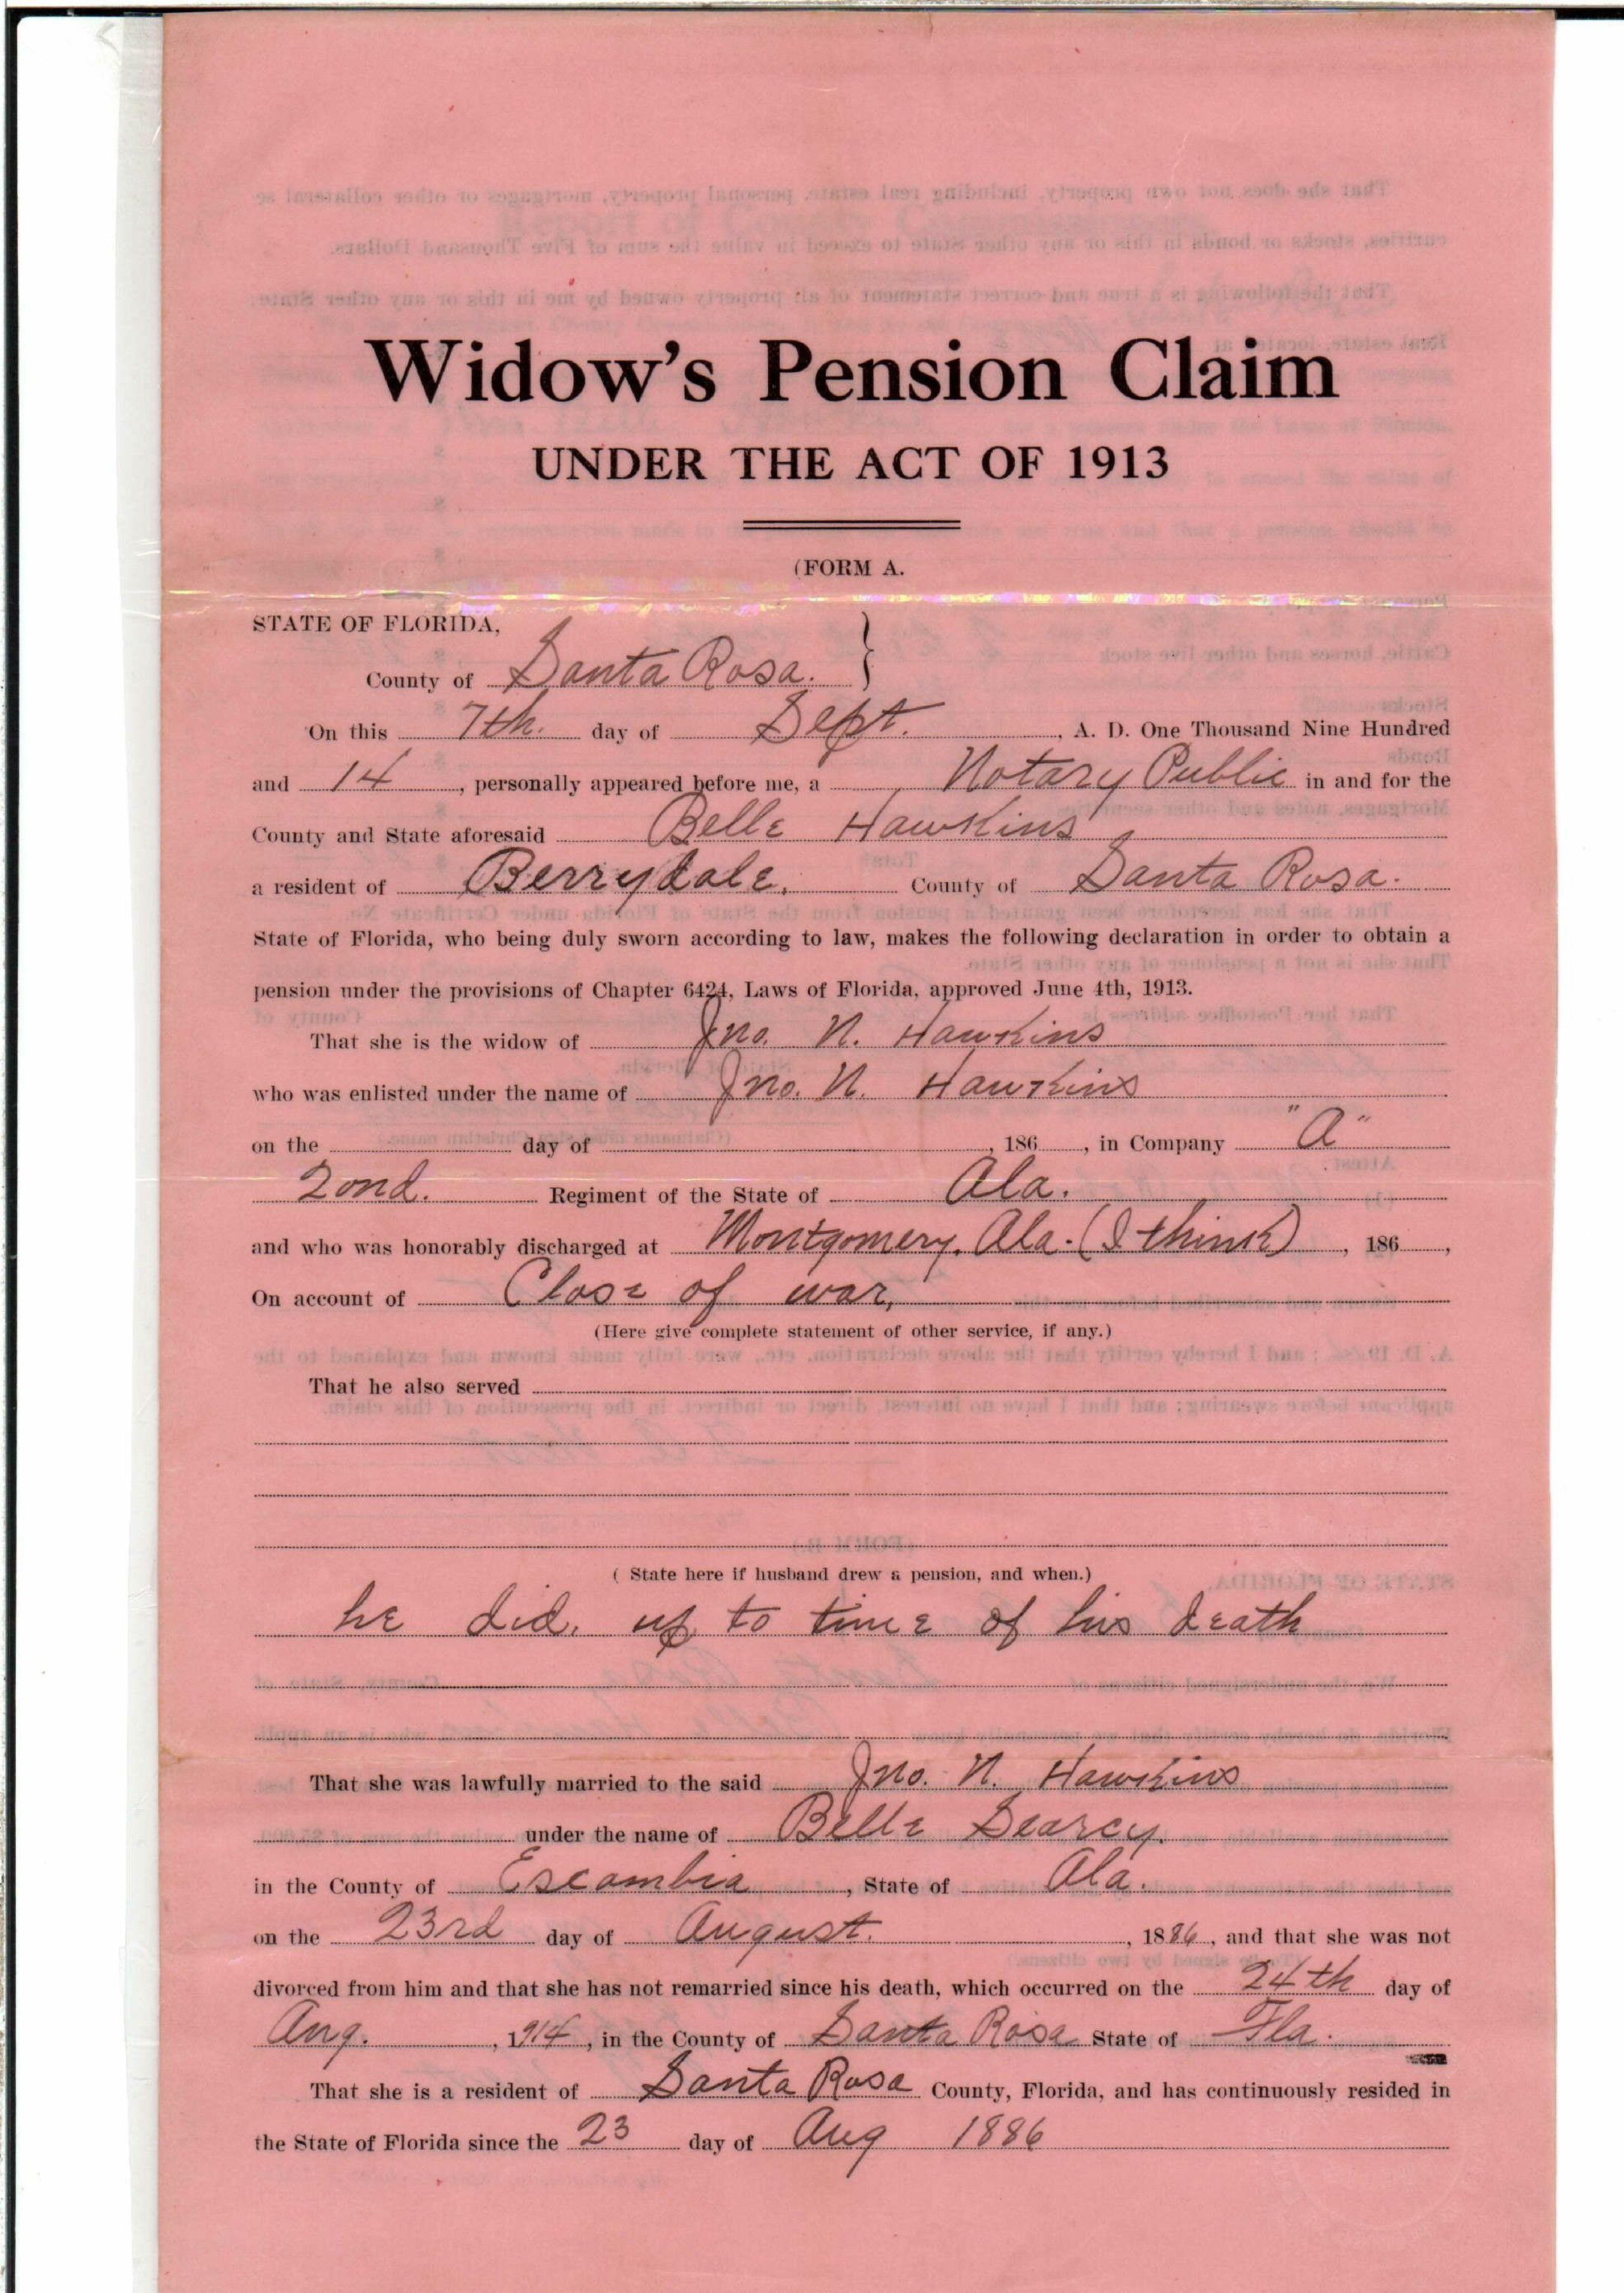 Widow's Pension Claim
UNDER THE ACT OF 1913
(FORM A.
STATE OF FLORIDA,
County of Santa Rosa. }
On this 7th. day of Sept. , A. D. One Thousand Nine Hundred
and 14 , personally appeared before me, a Notary Public in and for the
County and State aforesaid Belle Hawkins
a resident of Berrydale. County of Santa Rosa.
State of Florida, who being duly sworn according to law, makes the following declaration in order to obtain a
pension under the provisions of Chapter 6424, Laws of Florida, approved June 4th, 1913.
That she is the widow of Jno. N. Hawkins
who was enlisted under the name of Jno. N. Hawkins
on the day of , 186 , in Company "A"
2ond. Regiment of the State of Ala.
and who was honorably discharged at Montgomery, Ala. (I think) , 186 ,
On account of Close of war,
(Here give complete statement of other service, if any.)
That he also served
( State here if husband drew a pension, and when.)
he did. up to time of his death
That she was lawfully married to the said Jno. N. Hawkins
under the name of Belle Searcy.
in the County of Escambia , State of Ala.
on the 23rd day of August. , 1886 , and that she was not
divorced from him and that she has not remarried since his death, which occurred on the 24th day of
Aug. , 1914 , in the County of Santa Rosa State of Fla.
That she is a resident of Santa Rosa County, Florida, and has continuously resided in
the State of Florida since the 23 day of Aug 1886